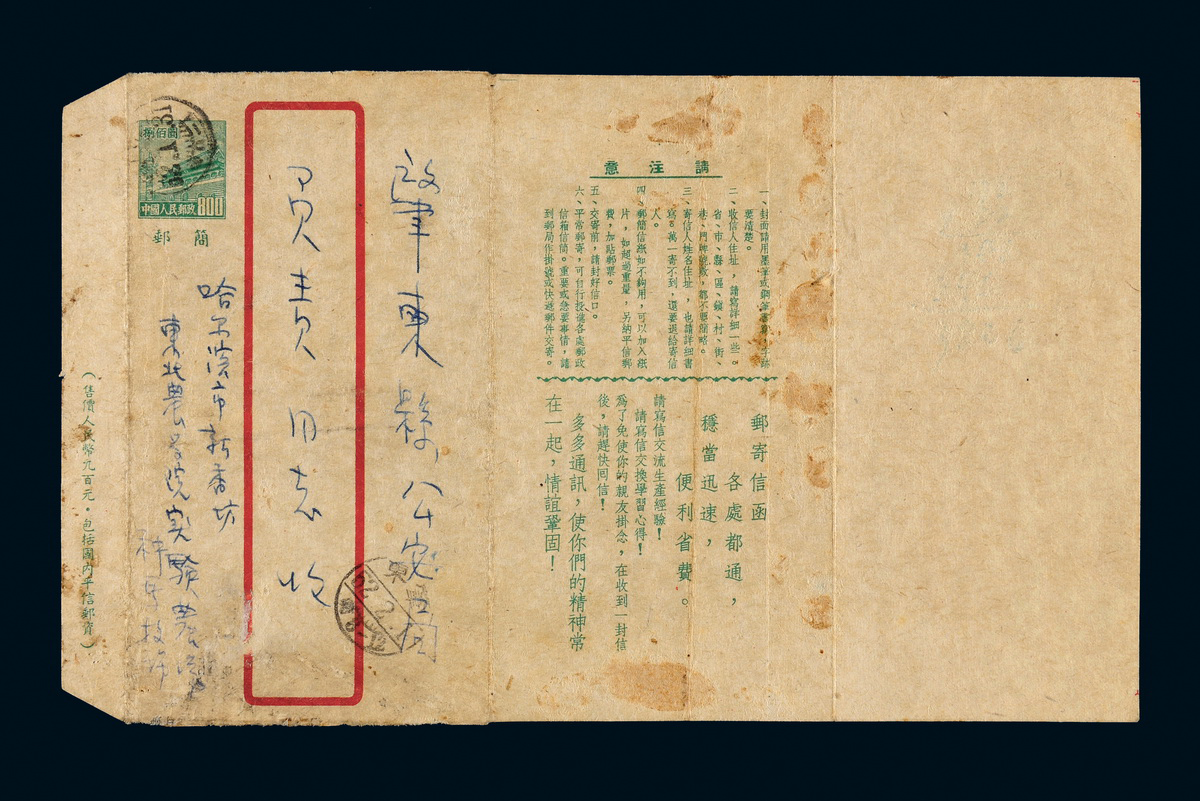 請注意
一、封面請用墨筆或鋼筆書寫，字跡
要清楚。
二、收信人住址，請寫詳細一些：
省、市、縣、區、鎮、村、街、
巷、門牌號數，都不要簡略。
三、寄信人姓名住址，也請詳細書
寫。萬一寄不到，還要退給寄信
人。
四、郵簡信紙如不夠用，可以加入紙
片，如超過重量，另納平信郵
費，加貼郵票。
五、交寄前，請封好信口。
六、平常郵寄，可自行投進各處郵政
信箱信筒。重要或急要事情，請
到郵局作掛號或快遞郵件交寄。
郵寄信函
各處都通，
穩當迅速，
便利省費。
請寫信交流生產經驗！
請寫信交換學習心得！
為了免使你的親友掛念，在收到一封信
後，請趕快囘信！
多多通訊，使你們的精神常
在一起，情誼鞏固！
東縣公安
同志收
捌佰圓
中國人民郵政 800
郵簡
哈尔濱市新香坊
東北農学院実験農場
（售價人民幣九百元・包括國內平信郵資）
52.2